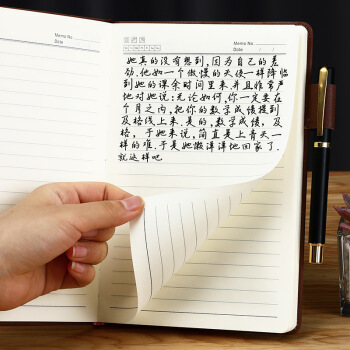 Memo No
Date
Memo No
Date / /
她真的没有想到,因为自己的差
劲.他如一个傲慢的天使一样降临
到她的课余时间里来.并且非常严
地对她说:无论如何,你一定要在
个月之内,把你的数学成绩提到
及格线上来.是的,数学成绩,及
格,于她来说,简直是上青天一
样的难.于是她懒洋洋地回家了.
就这样吧.